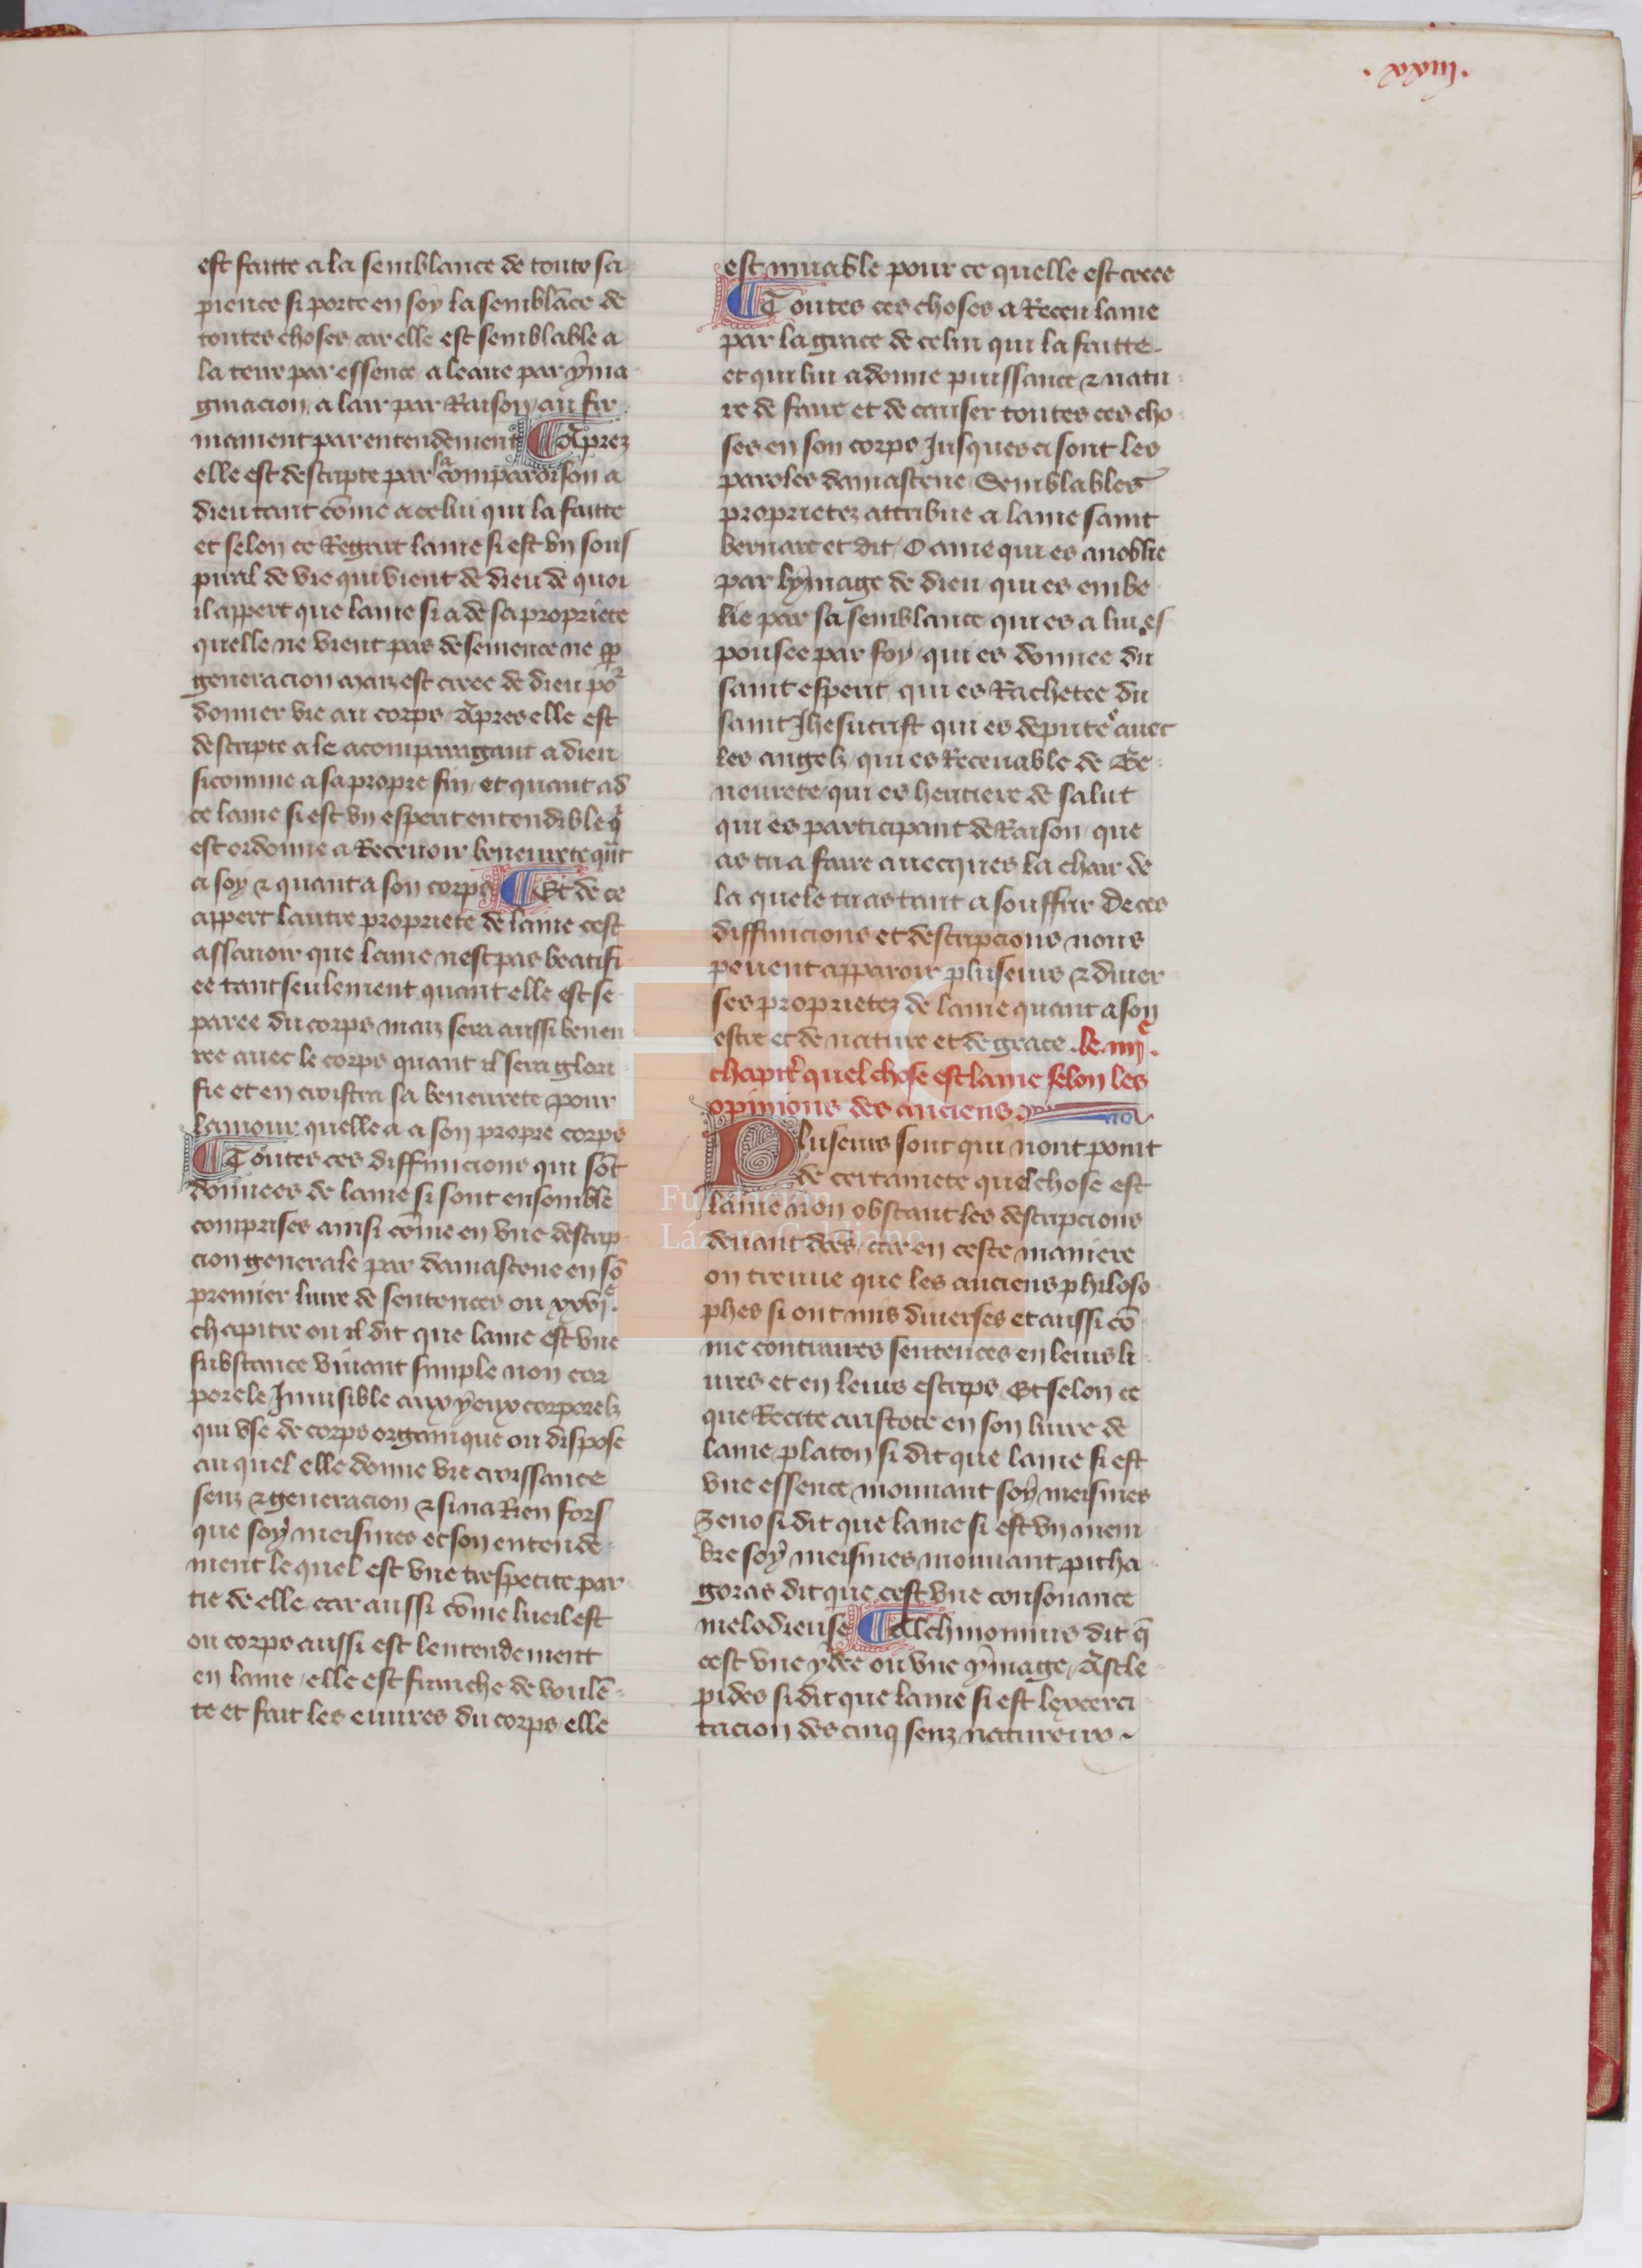 .xxiiij.
est faitte a la semblance de toute sa
pience si porte en soy la semblāce de
toutes choses car elle est semblable a
la terre par essence a leaue par yma
ginacion a lair par Raison au fir
mament par entendement Aprez
elle est descripte par la comparoison a
dieu tant cōme a celui qui la faitte
et selon ce Regart lame si est vn sous
piral de vie qui vient de dieu de quoi
il appert que lame si a de sa propriete
quelle ne vient pas de semence ne ꝑ
generacion maiz est creee de dieu poᷣ
donner vie au corps Apres elle est
descripte a le acomparagant a dieu
si comme a sa propre fin et quant ad
ce lame si est vn esperit entendible q̄
est ordonne a Receuoir beneurete qn̄t
a soy ⁊ quant a son corps Et de ce
appert lautre propriete de lame cest
assauoir que lame nest pas beatifi
ee tant seulement quant elle est se
paree du corps maiz sera aussi beneu
ree auec le corps quant il sera glori
fie et en croistra sa beneurete pour
lamour quelle a a son propre corps
Toutes ces diffinicions qui sōt
donnees de lame si sont ensemble
comprises ainsi cōme en vne descrip
cion generale par damascene en sō
premier liure de sentences ou xxvjᵉ.
chapitre ou il dit que lame est vne
substance viuant simple non cor
porele Inuisible aux yeux corporelz
qui vse de corps organique ou dispose
au quel elle donne vie croissance
senz ⁊ generacion ⁊ si na Rien fors
que soy meismes et son entende
ment le quel est vne trespetite par
tie de elle car aussi cōme lueil est
ou corps aussi est lentendement
en lame elle est franche de voulē
te et fait les euures du corps elle
est muable pour ce quelle est creee
Toutes ces choses a Receu lame
par la grace de celui qui la faitte
et qui lui a donne puissance ⁊ natu
re de faire et de causer toutes ces cho
ses en son corps Jusques ci sont les
paroles damascene Semblables
proprietez attribue a lame saint
bernart et dit O ame qui es anoblie
par lymage de dieu qui es embe
lie par sa semblance qui es a lui es
pousee par foy qui es donnee du
saint esperit qui es Rachetee du
saint Jhesucrist qui es deputee auec
les angelz qui es Receuable de Be
neurete qui es heritiere de salut
qui es participant de Raison que
as tu a faire auecques la chair de
la quele tu as tant a souffrir De ces
diffinicions et descripcions nous
peuent apparoir pluseurs ⁊ diuer
ses proprietez de lame quant a son
estre et de nature et de grace. Le iiijᵉ.
chapitᷣ quel chose est lame selon les
opinions des anciens
Pluseurs sont qui nont point
de certainete quel chose est
lame non obstant les descripcions
deuant dc̄es car en ceste maniere
on treuue que les anciens philoso
phes si ont mis diuerses et aussi cō
me contraires sentences en leurs li
ures et en leurs escrips Et selon ce
que Recite aristote en son liure de
lame platon si dit que lame si est
vne essence mouuant soy meismes
Zeno si dit que lame si est vn mem
bre soy meismes mouuant pitha
goras dit que cest vne consonance
melodieuse Alchmomius dit q̄
cest vne ydee ou vne ymage Ascle
pides si dit que lame si est lexerci
tacion des cinq senz natureux
Fundación
Lázaro Galdiano